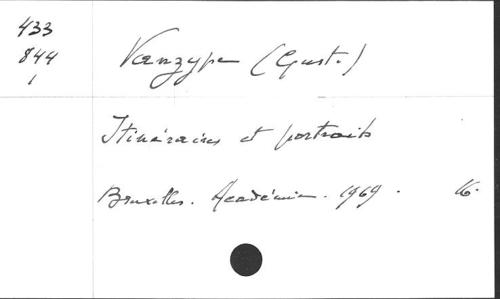 433
844
1
Vanzype (Gust.)
Itinéraires et portraits
Bruxelles. Académie. 1969. 16.